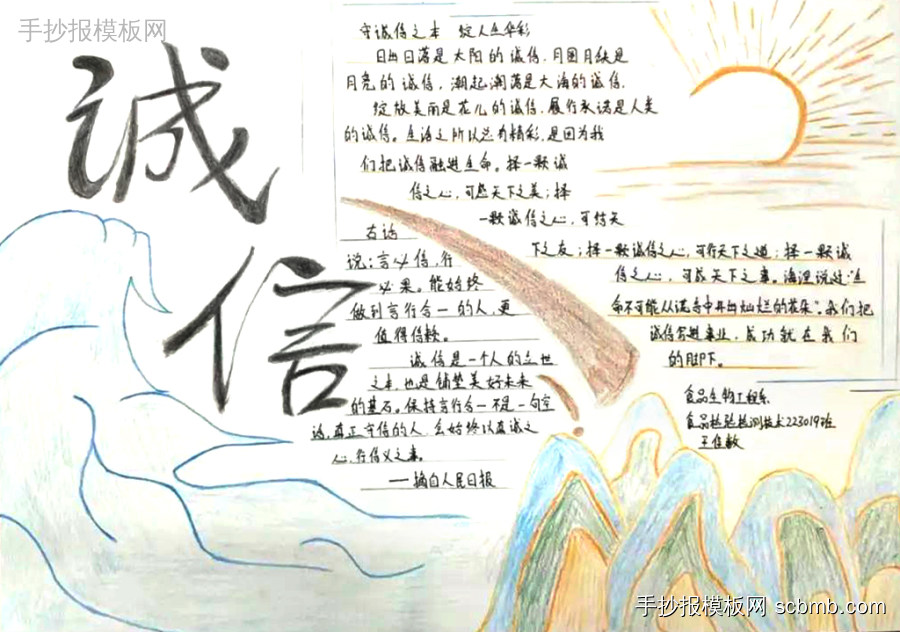 手抄报模板网
诚
信
守诚信之本 绽人生华彩
日出日落是太阳的诚信,月圆月缺是
月亮的诚信,潮起潮落是大海的诚信,
绽放美丽是花儿的诚信,履行承诺是人类
的诚信。生活之所以总有精彩,是因为我
们把诚信融进生命。择一颗诚
信之心,可感天下之美;择
一颗诚信之心,可结天
下之友;择一颗诚信之心,可行天下之道;择一颗诚
信之心,可成天下之事。海涅说过:“生
命不可能从谎言中开出灿烂的花朵”。我们把
诚信穿进事业,成功就在我们
的脚下。
古话
说:言必信,行
必果。能始终
做到言行合一的人,更
值得信赖。
诚信是一个人的立世
之本,也是铺垫美好未来
的基石。保持言行合一不是一句空
话,真正守信的人,会始终以真诚之
心,行信义之事。
——摘自人民日报
食品生物工程系
食品检验检测技术223019班
王佳敏
手抄报模板网 scbmb.com